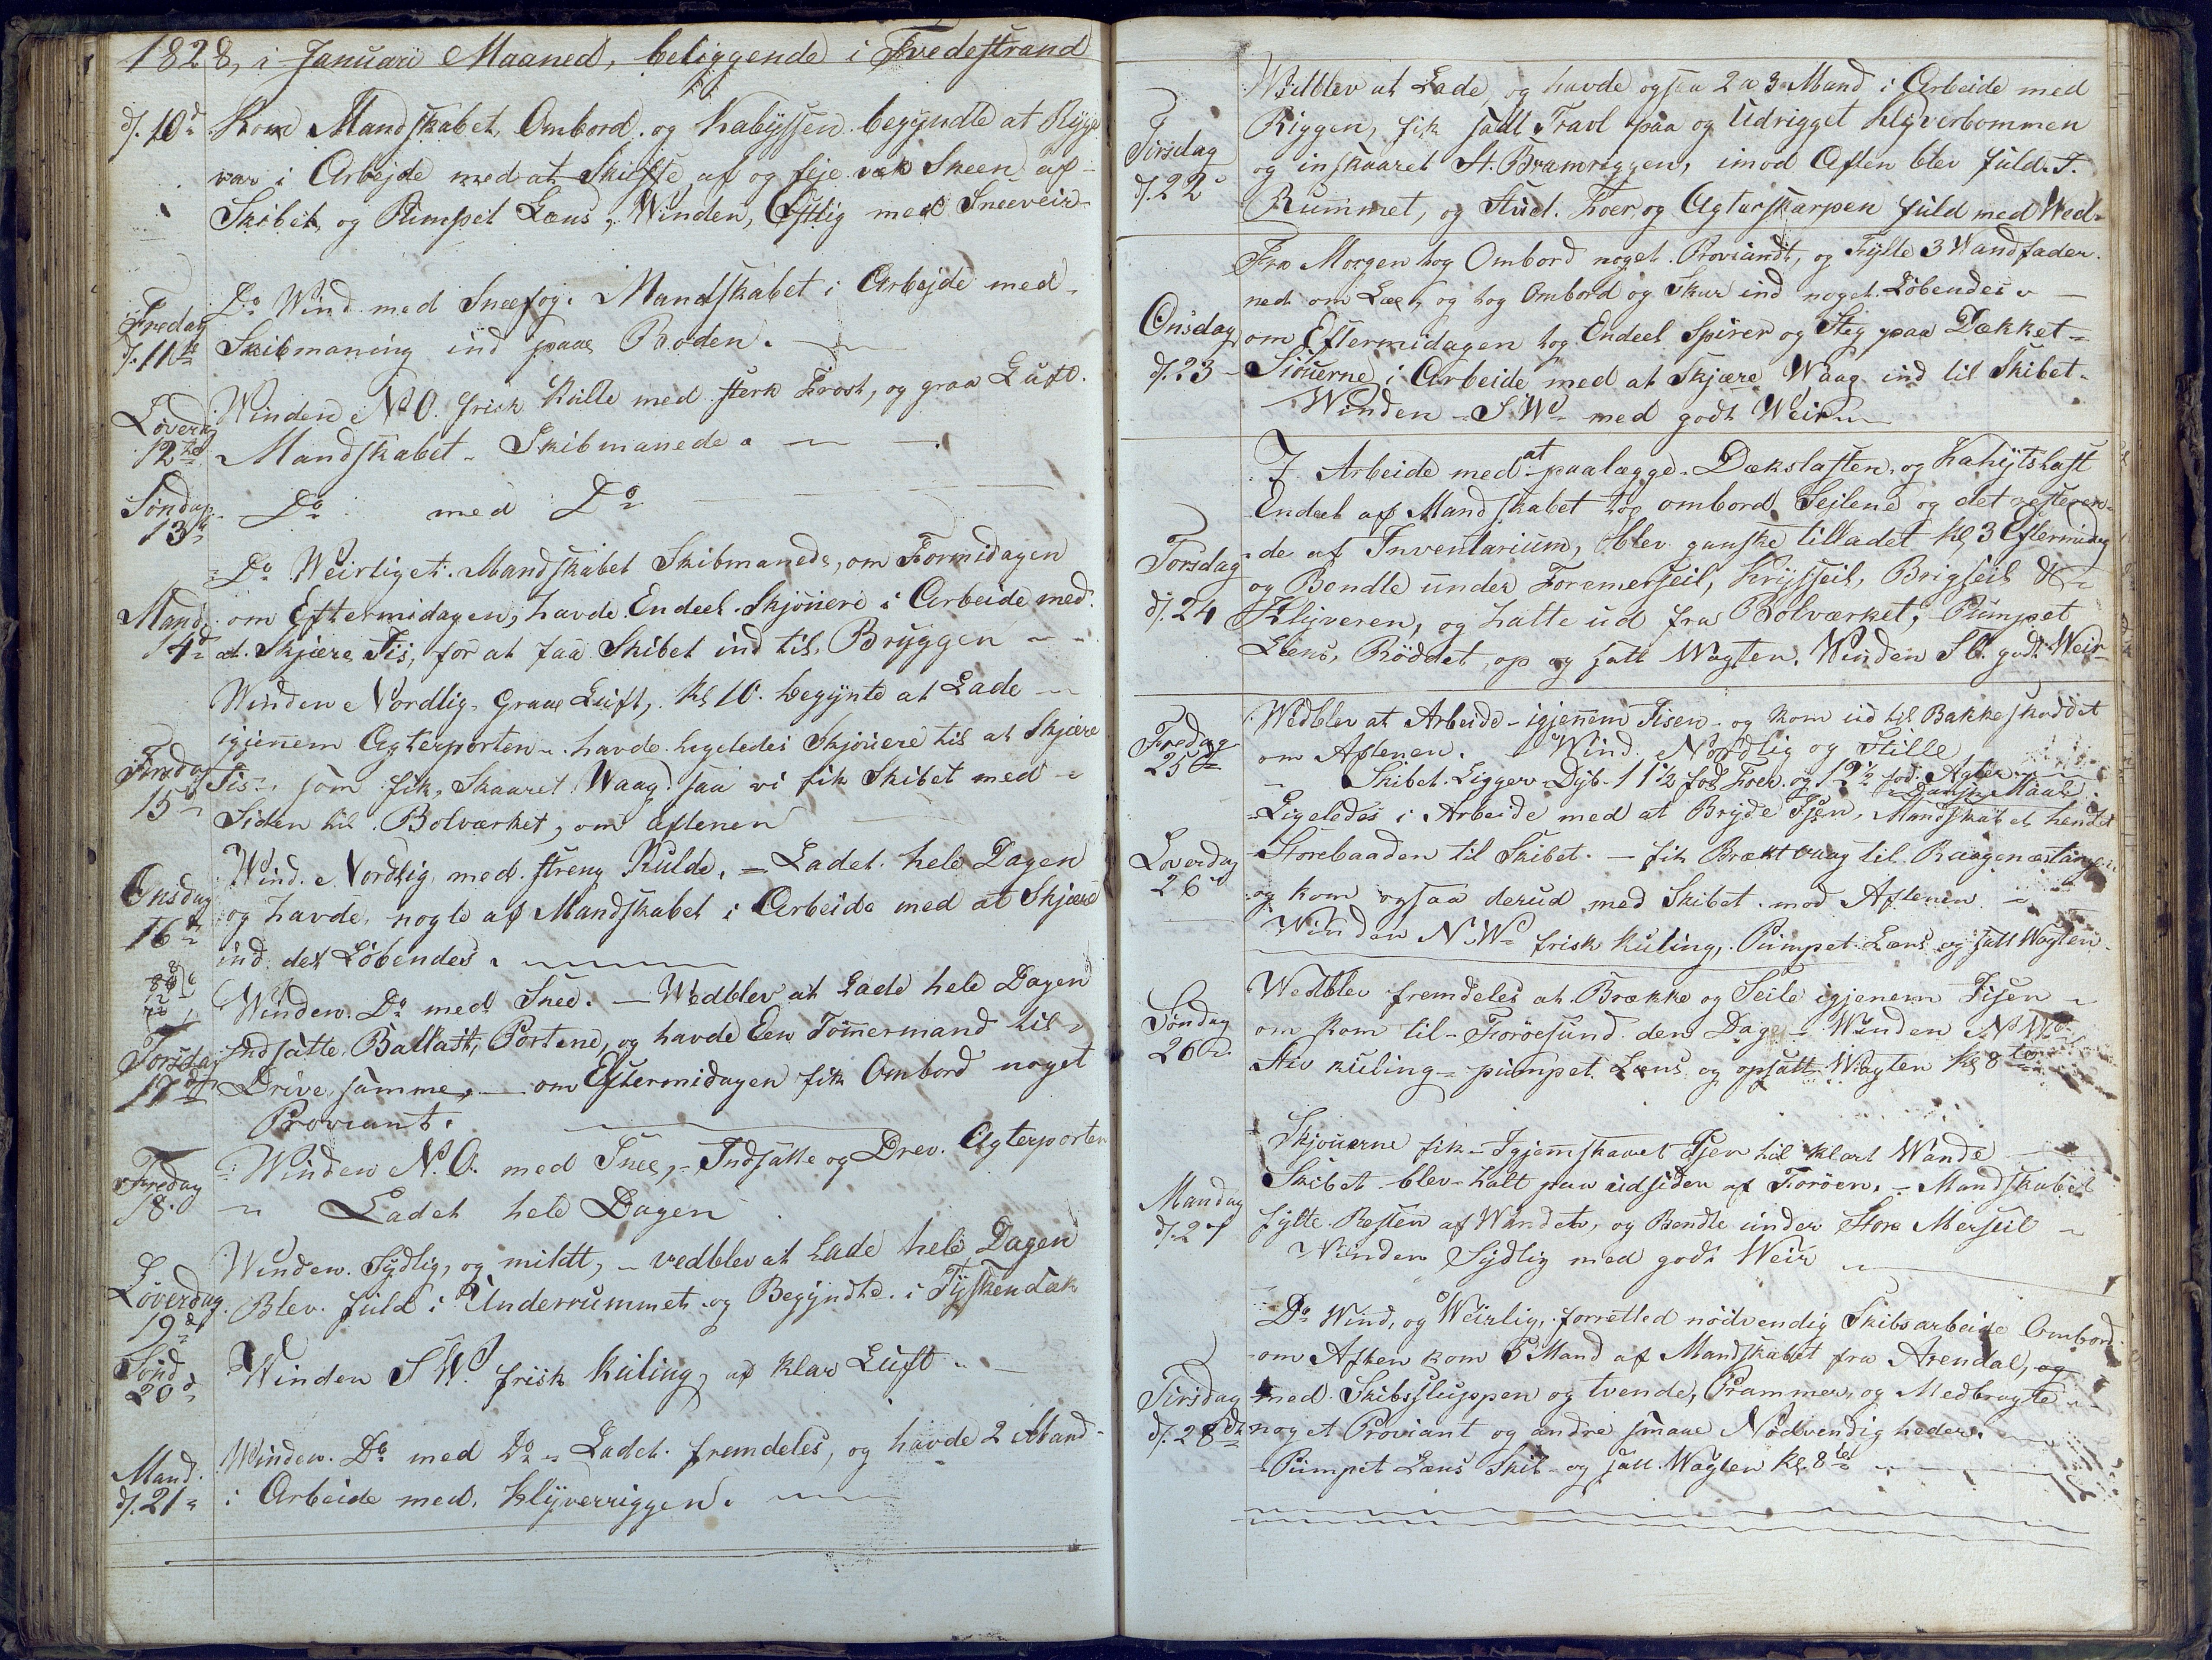 1828, i Januari Maaned, beliggende i Tvedestrand
d. 10d Kom Mandskabet Ombord og Kabyssen begyndte at Ryge
var i Arbejde med at Skuffe af og feje væk Sneen af
Skibet, og Pumpet Læns, Winden, Østlig med Sneeveir
Fredag
d. 11te
Do Wind med Sneefog. Mandskabet i Arbejde med
Skibmaning ind paae Boden.
Løverd
12te
Winden NO. frisk Kulle med sterk Frost, og graa Luft.
Mandskabet Skibmanede.
Søndag
13d
Do med Do
Mand.
14d
Do Weirliget. Mandskabet Skibmanede, om Formidagen
om Eftermidagen, havde Endeel Skjöuere i Arbeide med
at Skjære Iis, for at faa Skibet ind til Bryggen
Tirsdag
15d
Winden Nordlig Graae Luft, Kl 10. begynte at Lade
igjenem Agterporten havde ligeledes Skjöuere til at Skjære
Iis, som fik Skaaret Waag saa vi fik Skibet med
Siden til Bolværket, om aftenen
Onsdag
16d
Wind Nordlig med streng Kulde, Ladet hele Dagen
og havde nogle af Mandskabet i Arbeide med at Skjære
ind det Løbendes.
Torsdag
17de
Winden Do med Snee. Wedblev at Lade hele Dagen
Indsatte Ballast Portene, og havde Een Tömermand til
Drive samme, om Eftermidagen fik Ombord noget
Proviant.
Fredag
18.
Winden N.O. med Snee, Indsatte og Drev. Agterporten
Ladet hele Dagen
Løverdag
19d
Winden Sydlig, og mildt, vedblev at Lade hele Dagen
Blev fuld i Underrummet og Begyndte i Tyskendæk
Sønd
20d
Winden SW. frisk Kuling, og klar Luft
Mand.
d. 21
Winden Do med Do Ladet fremdeles, og havde 2 Mand
i Arbeide med Klyverriggen.
Tirsdag
d. 22
Wedblev at Lade og havde ogsaa 2 a 3 Mand i Arbeide med
Riggen, fik satt Travl paa og Udrigget Klyverbommen
og inskaaret St. Bramriggen, imod Aften blev fuld. I.
Rummet, og Stud. Foer og Agterskarpen fuld med Wed
Onsdag
d. 23
Fra Morgen tog Ombord noget Proviandt, og Fylte 3 Vandfader
ned om Læe, og tog Ombord og Skur ind noget Løbendes
om Eftermidagen tog Endeel Spirer og Steg paa Dækket
Siöuerne i Arbeide med at Skjære Waag ind til Skibet
Winden SW med godt Weir
Torsdag
d. 24
I Arbeide med at paalægge Dækslasten og Kahytslast
Endeel af Mandskabet tog ombord Seilene og det resteren-
de af Inventarium, blev ganske tilladet Kl 3 Eftermidag
og Bendte under Foremerseil, Krysseil, Brigseil &
Klyveren, og halte ud fra Bolværket, Pumpet
Læns, Röddet op og satt Wagten. Winden SO. godt Weir
Fredag
25d
Wedblev at Arbeide igjennem Iisen og kom ud til Bakkeskoddet
om Aftenen. Wind Nordlig og Stille
Skibet Ligger Dyb 11½ fod Foer og 12½ fod Agter
Dansk Maal.
Løverdag
26d
Ligeledes i Arbeide med at Bryde Isen, Mandskabet hendet
Storebaaden til Skibet. fik Brækt vaag til Raagenæstangen
og kom ogsaa derud med Skibet mod Aftenen
Winden NW frisk Kuling, Pumpet Læns og satt Wagten
Søndag
26d
Wedblev fremdeles at Brække og Seile igjenem Iisen
om kom til Foröesund den Dag. Winden NW
Stiv kuling pumpet Læns og opsatt Wagten Kl 8te
Mandag
d. 27
Skjouerne fik Igjemskaaret Isen til klart Wande
Skibet blev halt paa udsiden af Foröen. Mandskabet
fylte Resten af Wandet, og Bendte under Store Merseil
Winden Sydlig med godt Weir
Tirsdag
d. 28de
Do Wind, og Weirlig, forretted nödvendig Skibsarbeide Ombord
om Aften kom 5 Mand af Mandskabet fra Arendal, og
med Skibssluppen og tvende, Prammer, og Medbragte
noget Proviant og andre smaae Nödvendigheder.
Pumpet Læns Skib og satt Wagten Kl. 8te